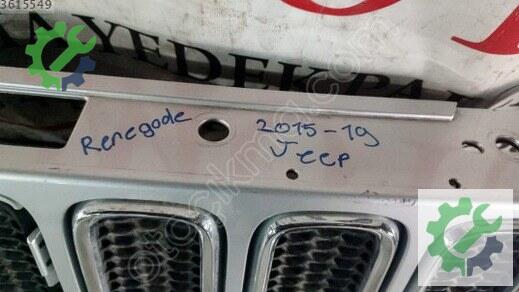 3615549
YEDEK PAR
Renegade
2015-19
Jeep
otocikma.com